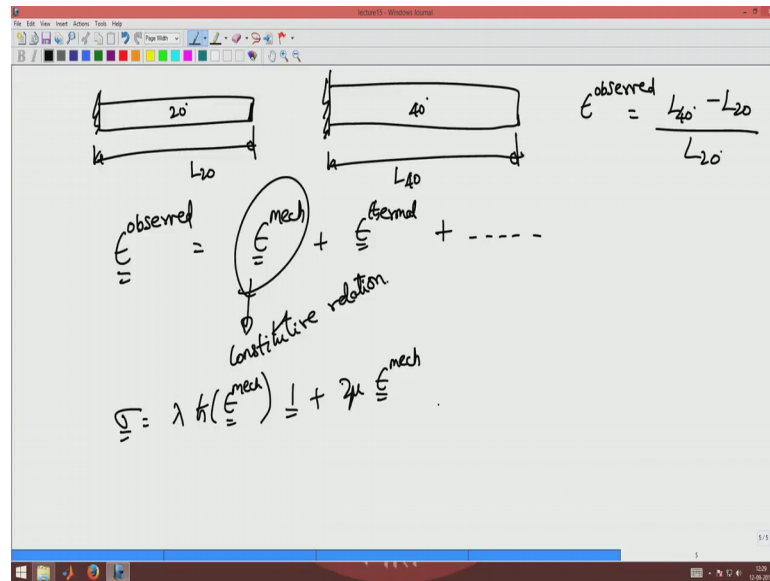 lecture15 - Windows Journal
File Edit View Insert Actions Tools Help
Page Width
B I
20°
L20
40°
L40
ϵ^observed = (L40° - L20) / L20°
ϵ^observed = ϵ^mech + ϵ^thermal + -----
constitutive relation.
σ = λ tr(ϵ^mech) 1 + 2μ ϵ^mech
5/5
5
12:29